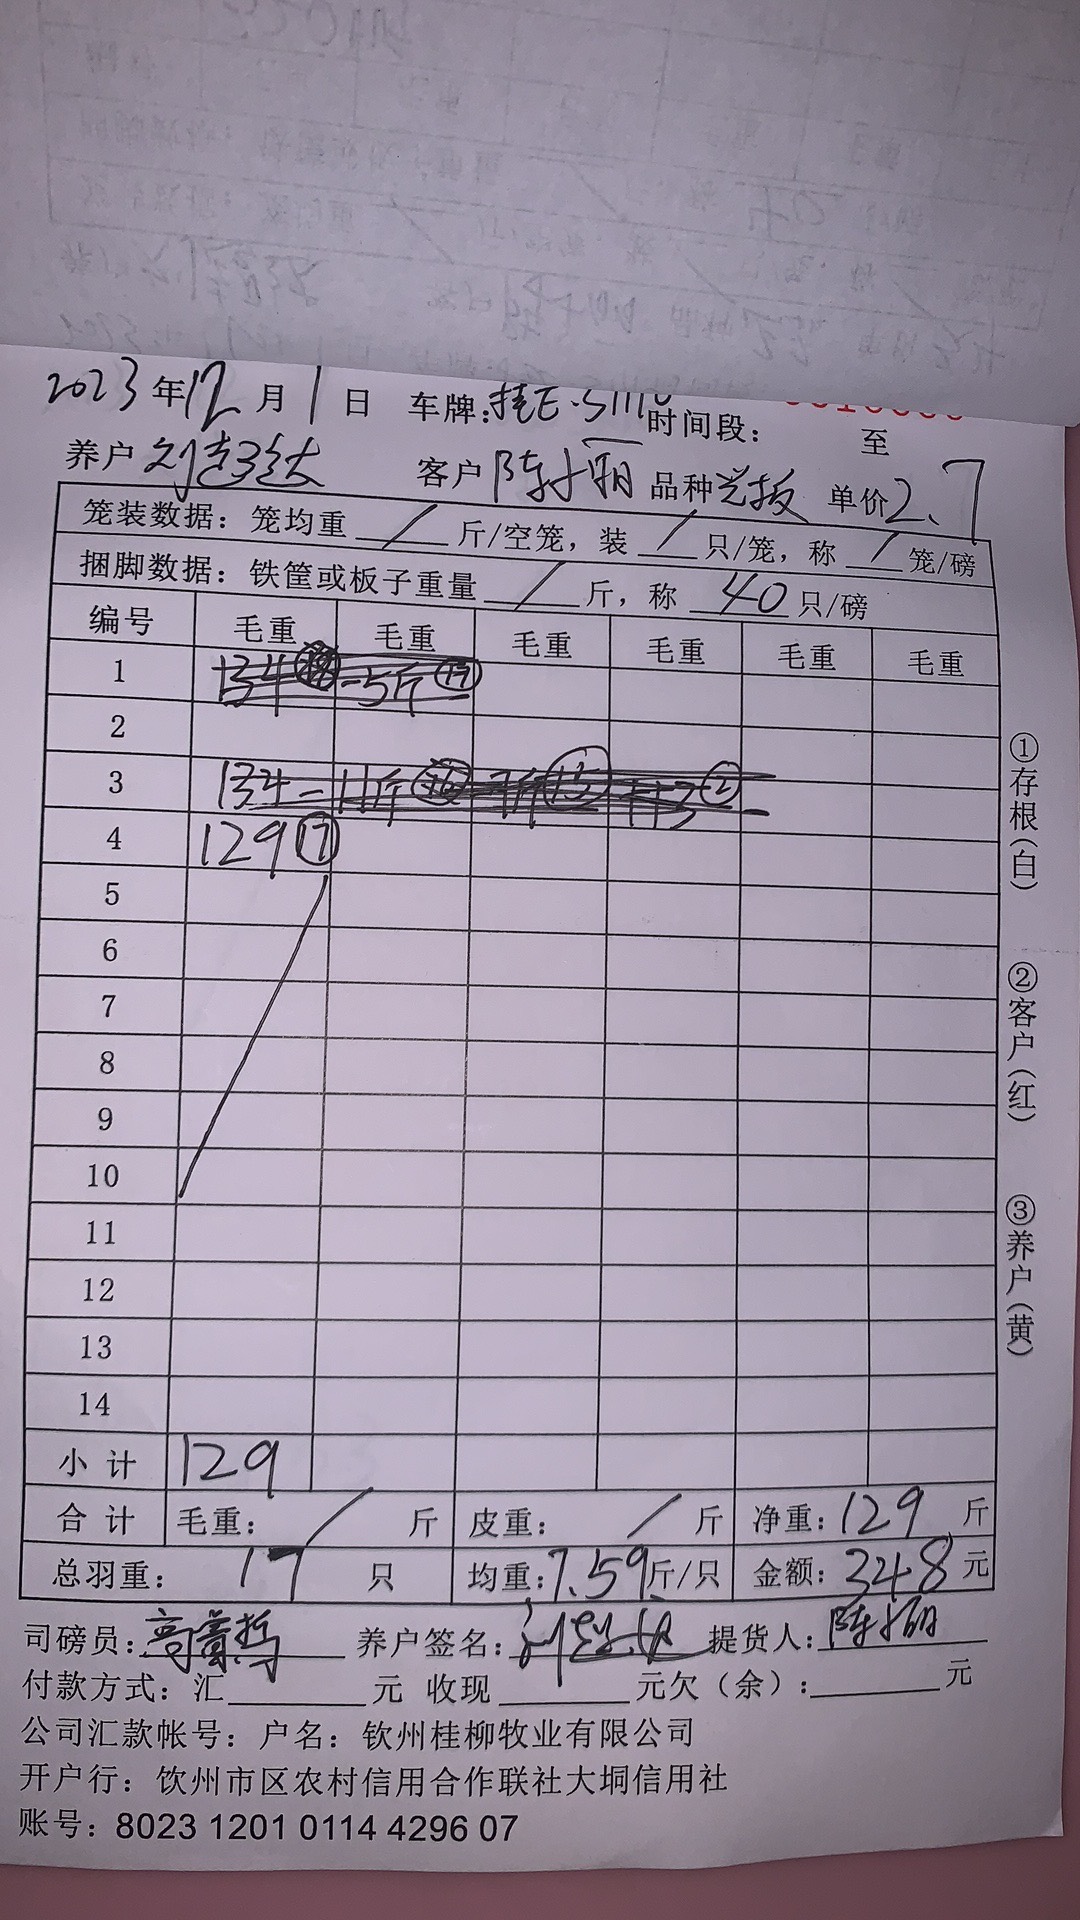 2023年12月1日 车牌:桂E· 时间段: 至
养户 客户 陈小丽 品种 单价2.7
笼装数据: 笼均重 / 斤/空笼, 装 / 只/笼, 称 / 笼/磅
捆脚数据: 铁筐或板子重量 / 斤, 称 40 只/磅
编号 毛重 毛重 毛重 毛重 毛重 毛重
1 134 -5斤 ⑰
2
3 134-11斤
4 129 ⑰
5
6
7
8
9
10
11
12
13
14
小 计 129
合 计 毛重: / 斤 皮重: / 斤 净重: 129 斤
总羽重: 17 只 均重: 7.59斤/只 金额: 348元
司磅员: 养户签名: 提货人: 陈小丽
付款方式: 汇 元 收现 元欠(余): 元
公司汇款帐号: 户名: 钦州桂柳牧业有限公司
开户行: 饮州市区农村信用合作联社大垌信用社
账号: 8023 1201 0114 4296 07
①存根(白)
②客户(红)
③养户(黄)